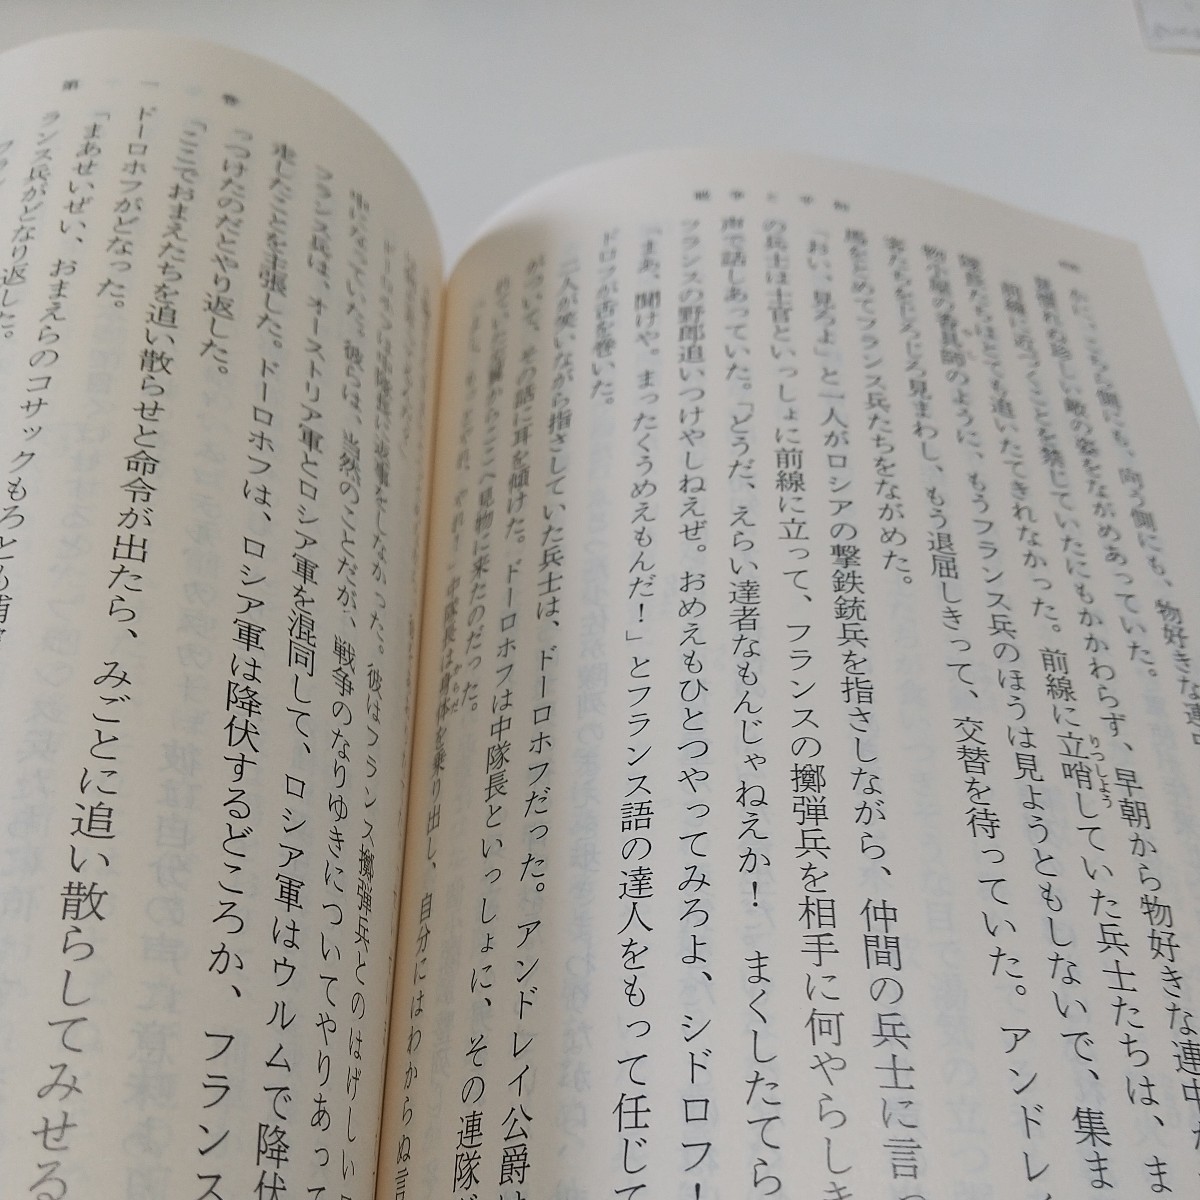 戦争と平和
かに、こちら側にも、向う側にも、物好きな連中
見慣れぬ珍しい敵の姿をながめあっていた。
前線に近づくことを禁じていたにもかかわらず、早朝から物好きな連中
隊長たちはとても追いたてきれなかった。前線に立哨していた兵士たちは、ま
りっしょう
物小屋の番具師のように、もうフランス兵のほうは見ようともしないで、集ま
客たちをじろじろ見まわし、もう退屈しきって、交替を待っていた。アンドレ
馬をとめてフランス兵たちをながめた。
「おい、見ろよ」と一人がロシアの撃鉄銃兵を指さしながら、仲間の兵士に言っ
の兵士は士官といっしょに前線に立って、フランスの擲弾兵を相手に何やらしき
声で話しあっていた。「どうだ、えらい達者なもんじゃねえか! まくしたてら
フランスの野郎追いつけやしねえぜ。おめえもひとつやってみろよ、シドロフ!
「まあ、聞けや。まったくうめえもんだ!」とフランス語の達人をもって任じて
ドロフが舌を巻いた。
二人が笑いながら指さしていた兵士は、ドーロホフだった。アンドレイ公爵は
がついて、その話に耳を傾けた。ドーロホフは中隊長といっしょに、その連隊が
左翼からここへ見物に来たのだった。
中隊長は身体を乗り出し、自分にはわからぬ言
からだ
第一巻
ドーロホフは中隊長に返事をしなかった。彼はフランス擲弾兵とのはげしい
中になっていた。彼らは、当然のことだが、戦争のなりゆきについてやりあって
フランス兵は、オーストリア軍とロシア軍を混同して、ロシア軍はウルムで降伏
走したことを主張した。ドーロホフは、ロシア軍は降伏するどころか、フランス
つつけたのだとやり返した。
「ここでおまえたちを追い散らせと命令が出たら、みごとに追い散らしてみせる
ドーロホフがどなった。
「まあせいぜい、おまえらのコサックもろとも捕
ランス兵がどなり返した。
フラン